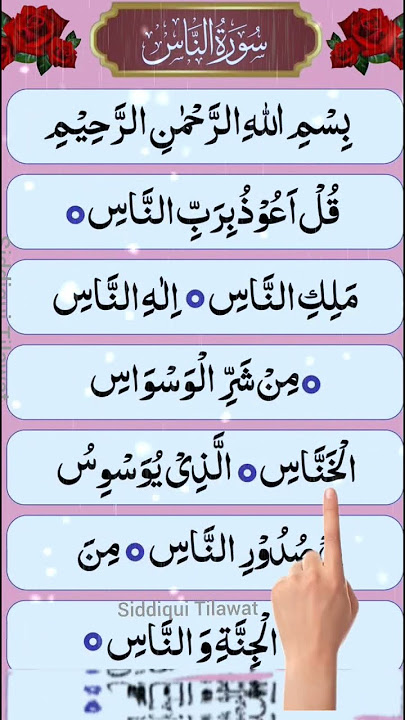 سُوْرَةُ النَّاسِ
بِسْمِ اللهِ الرَّحْمٰنِ الرَّحِيْمِ
قُلْ اَعُوْذُ بِرَبِّ النَّاسِ
مَلِكِ النَّاسِ اِلٰهِ النَّاسِ
مِنْ شَرِّ الْوَسْوَاسِ
الْخَنَّاسِ الَّذِيْ يُوَسْوِسُ
صُدُوْرِ النَّاسِ مِنَ
Siddiqui Tilawat
الْجِنَّةِ وَ النَّاسِ